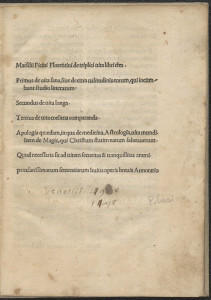 Marsilii Ficini Florentini de triplici vita libri tres.
Primus de vita sana, siue de cura valitudinis eorum, qui incum
bant studio litterarum
Secundus de vita longa
Tertius de vita coelitus comparanda
Apologia quædam, in qua de medicina, Astrologia, vita mundi
Item de Magis, qui Christum statim natum salutauerunt
Quod necessaria sit ad vitam securitas & tranquilitas animi
præclarissimarum sententiarum huius operis breuis Annotatio